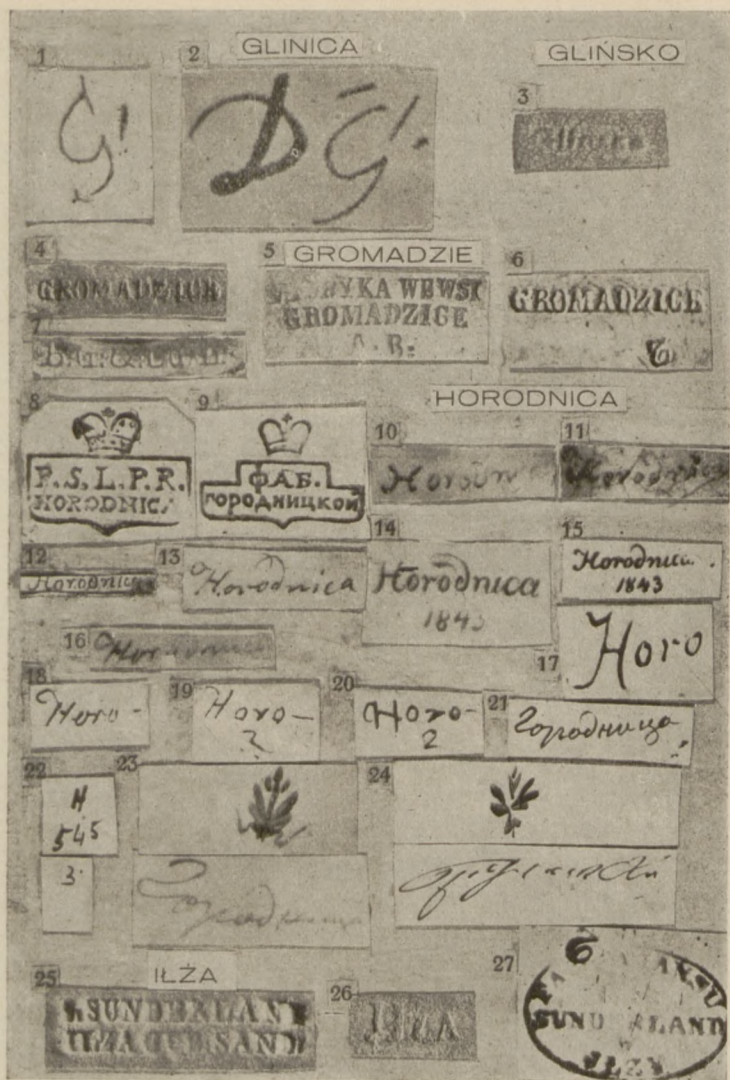 1
G
2
GLINICA
D G.
GLIŃSKO
3
4
GROMADZICE
5
GROMADZIE
FABRYKA WEWSI
GROMADZICE
A. B.
6
GROMADZICE
6
7
8
P.S.L.P.R.
HORODNICA
9
ФАБ.
ГОРОДНИЦКОЙ
HORODNICA
10
Horodn
11
Horodnica
12
Horodnica
13
Horodnica
14
Horodnica
1843
15
Horodnica.
1843
16
Horodnica
17
Horo
18
Horo-
19
Horo-
2
20
Horo-
2
21
Городница
22
H
545
3
23
Городница
24
25
IŁŻA
SUNDERLAND
IŁŻA GUB SAND
26
IŁŻA
27
6
SUND RLAND
IŁŻY